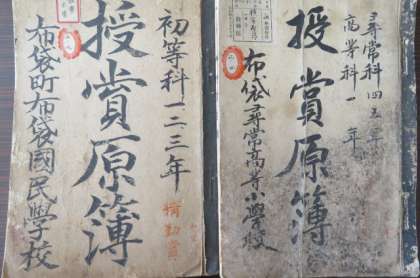 初等科一二三年
授賞原簿
布袋町布袋國民學校
精勤賞
尋常科四五年
高等科一年
授賞原簿
布袋尋常高等小學校